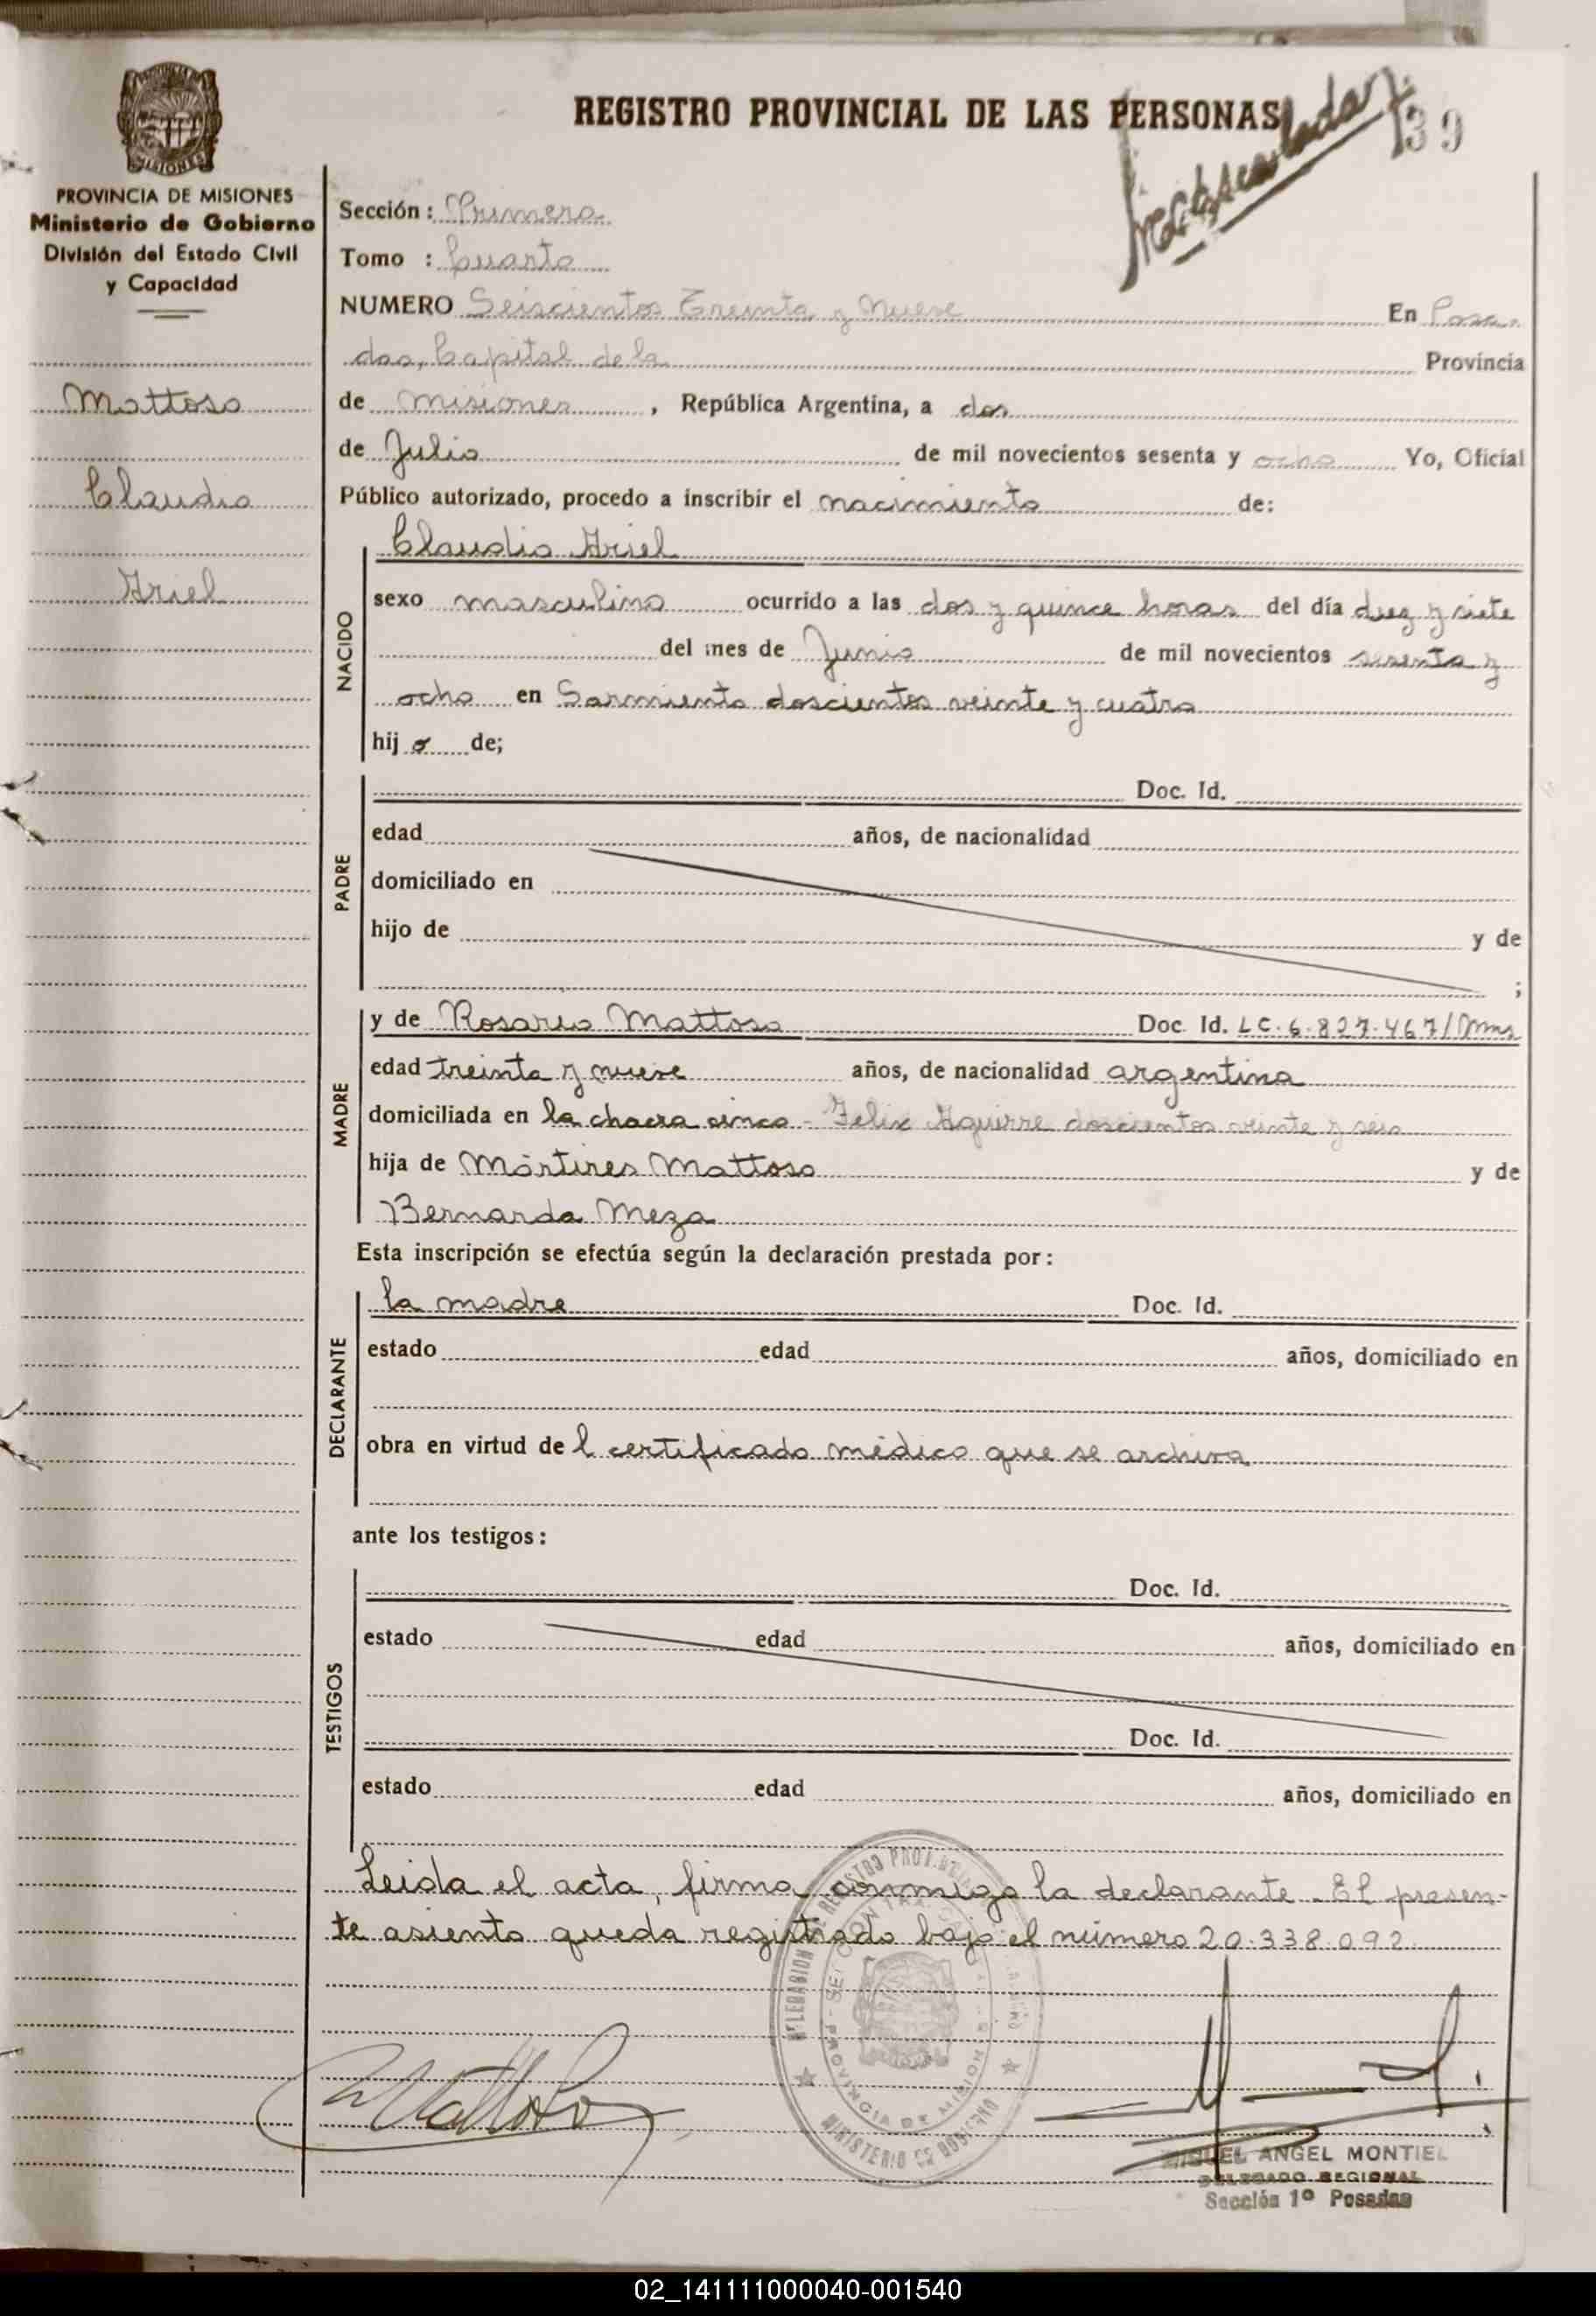 REGISTRO PROVINCIAL DE LAS PERSONAS
39
MISIONES
PROVINCIA DE MISIONES
Ministerio de Gobierno
División del Estado Civil
y Capacidad
Mattoso
Claudio
Ariel
Sección: Primera
Tomo : Cuarto
NUMERO Seiscientos Treinta y Nueve En Posa-
das, Capital de la Provincia
de Misiones, República Argentina, a dos
de Julio de mil novecientos sesenta y ocho Yo, Oficial
Público autorizado, procedo a inscribir el nacimiento de:
NACIDO
Claudio Ariel
sexo masculino ocurrido a las dos y quince horas del día diez y siete
del mes de Junio de mil novecientos sesenta y
ocho en Sarmiento doscientos veinte y cuatro
hij o de;
PADRE
Doc. Id.
edad años, de nacionalidad
domiciliado en
hijo de y de
;
MADRE
y de Rosario Mattoso Doc. Id. LC. 6.827.467/Mnes
edad treinta y nueve años, de nacionalidad argentina
domiciliada en la chacra cinco - Felix Aguirre doscientos veinte y seis
hija de Mártires Mattoso y de
Bernarda Meza
Esta inscripción se efectúa según la declaración prestada por:
DECLARANTE
la madre Doc. Id.
estado edad años, domiciliado en
obra en virtud de l certificado médico que se archiva
ante los testigos:
TESTIGOS
Doc. Id.
estado edad años, domiciliado en
Doc. Id.
estado edad años, domiciliado en
Leida el acta, firma conmigo la declarante. El presen-
te asiento queda registrado bajo el número 20.338.092
PROVINCIA DE MISIONES
MINISTERIO DE GOBIERNO
Mattoso
MIGUEL ANGEL MONTIEL
DELEGADO REGIONAL
Sección 1º Posadas
02_141111000040-001540